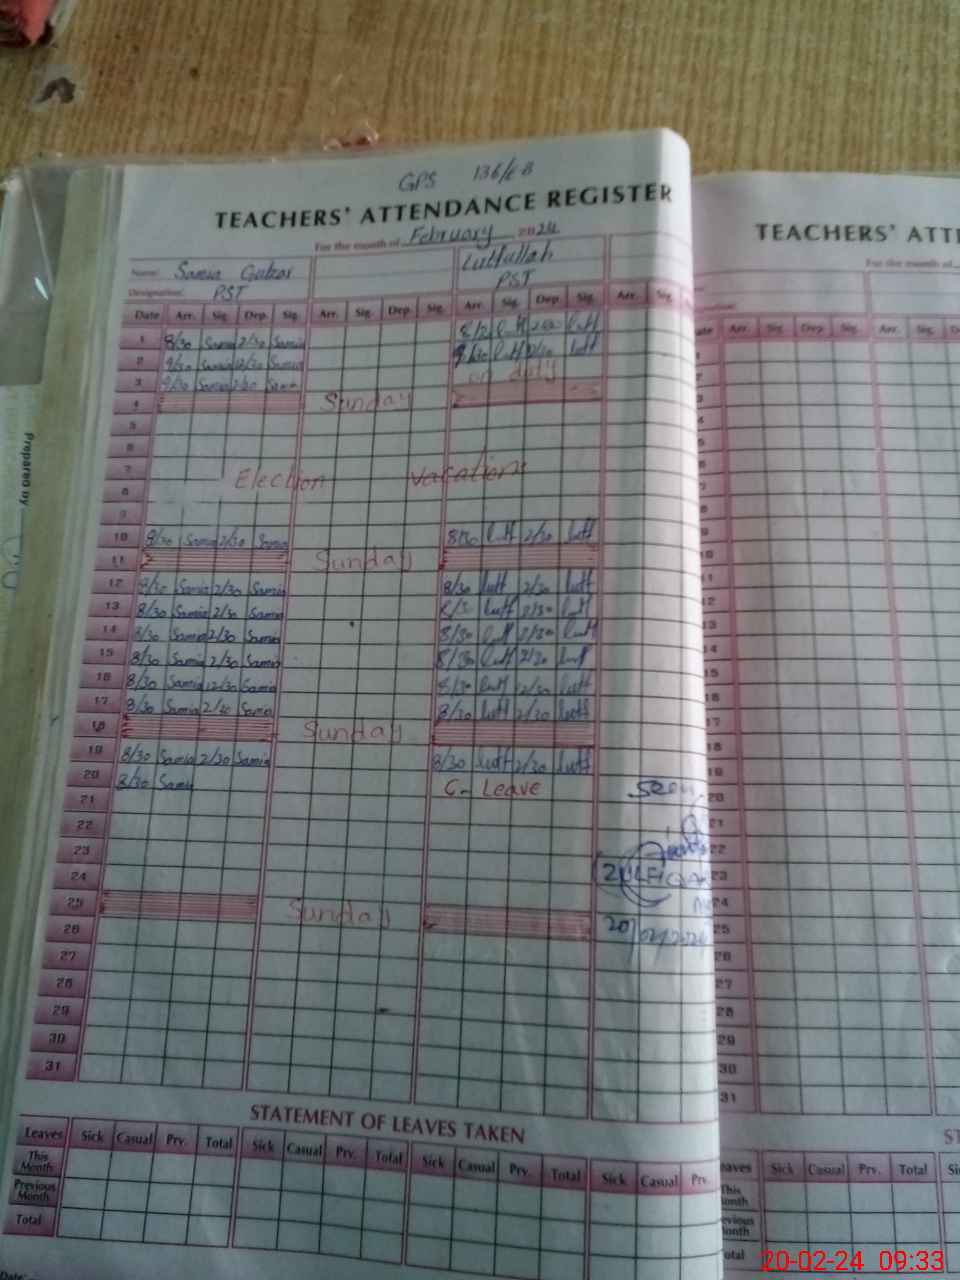 GPS 136/6B
TEACHERS' ATTENDANCE REGISTER
For the month of February 2024
Name: Samia Gulzar Lutfullah
Designation: PST PST
Date Arr. Sig. Dep. Sig. Arr. Sig. Dep. Sig. Arr. Sig. Dep. Sig. Arr. Sig.
1 8/30 Samia 2/30 Samia lutf lutf
2 9/30 Samia 12/30 Samia 9/30 lutf 12/30 lutf
3 9/30 Samia 2/30 Samia on duty
4 Sunday
5
6
7 Election vacations
8
9
10 8/30 Samia 2/30 Samia 8/30 lutf 2/30 lutf
11 Sunday
12 8/30 Samia 2/30 Samia 8/30 lutf 2/30 lutf
13 8/30 Samia 2/30 Samia 8/30 lutf 2/30 lutf
14 8/30 Samia 2/30 Samia 8/30 lutf 2/30 lutf
15 8/30 Samia 2/30 Samia 8/30 lutf 2/30 lutf
16 8/30 Samia 12/30 Samia 8/30 lutf 12/30 lutf
17 8/30 Samia 2/30 Samia 8/30 lutf 2/30 lutf
18 Sunday
19 8/30 Samia 2/30 Samia 8/30 lutf 2/30 lutf
20 8/30 Samia C- Leave Seen
21
22
23
24 ZULFIQAR
25 Sunday
26 20/02/2024
27
28
29
30
31
STATEMENT OF LEAVES TAKEN
Leaves Sick Casual Prv. Total Sick Casual Prv. Total Sick Casual Prv. Total Sick Casual Prv.
This Month
Previous Month
Total
Prepared by
TEACHERS' ATT
For the month of
Arr. Sig. Dep. Sig. Arr. Sig.
10
11
12
13
14
15
16
17
18
19
20
21
22
23
24
25
26
27
28
29
30
31
Sick Casual Prv. Total
This
20-02-24 09:33